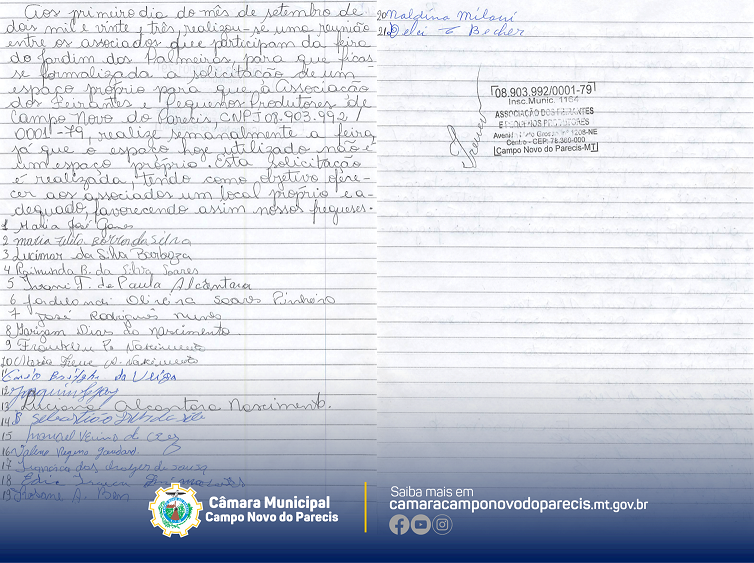 Aos primeiro dia do mês de setembro de
dois mil e vinte três, realizou-se uma reunião
entre os associados que participam da feira
do Jardim das Palmeiras, para que ficas-
se formalizada a solicitação de um
espaço próprio para que a Associação
dos Feirantes e Pequenos Produtores de
Campo Novo do Parecis, CNPJ 08.903.992/
0001-79 realize semanalmente a feira,
já que o espaço hoje utilizado não é
um espaço próprio. Esta solicitação
é realizada, tendo como objetivo ofere-
cer aos associados um local próprio e a-
dequado, favorecendo assim nossos fregueses.
1 Maria José
2 Maria da Silva
3 Lucimar da Silva Barboza
4 Raimunda B. da Silva Soares
5 Ivani F. de Paula Alcantara
6 Oliveira Soares Pinheiro
7 José Rodrigues Nunes
8 Dias do Nascimento
9 Franklin P. Nascimento
10 Maria Irene A. Nascimento
11 da Veiga
12
13 Luciana Alcantara Nascimento.
14 Sebastião
15 Manoel
16 Regina
17 Francisca das de Sousa
18
19 A.
20 Naldina Milani
21 Becher
08.903.992/0001-79
Insc.Munic. 1164
ASSOCIAÇÃO DOS FEIRANTES
E PEQUENOS PRODUTORES
Mato Grosso NE
Centro - CEP: 78.360-000
Campo Novo do Parecis-MT
Câmara Municipal
Campo Novo do Parecis
Saiba mais em
camaracamponovodoparecis.mt.gov.br